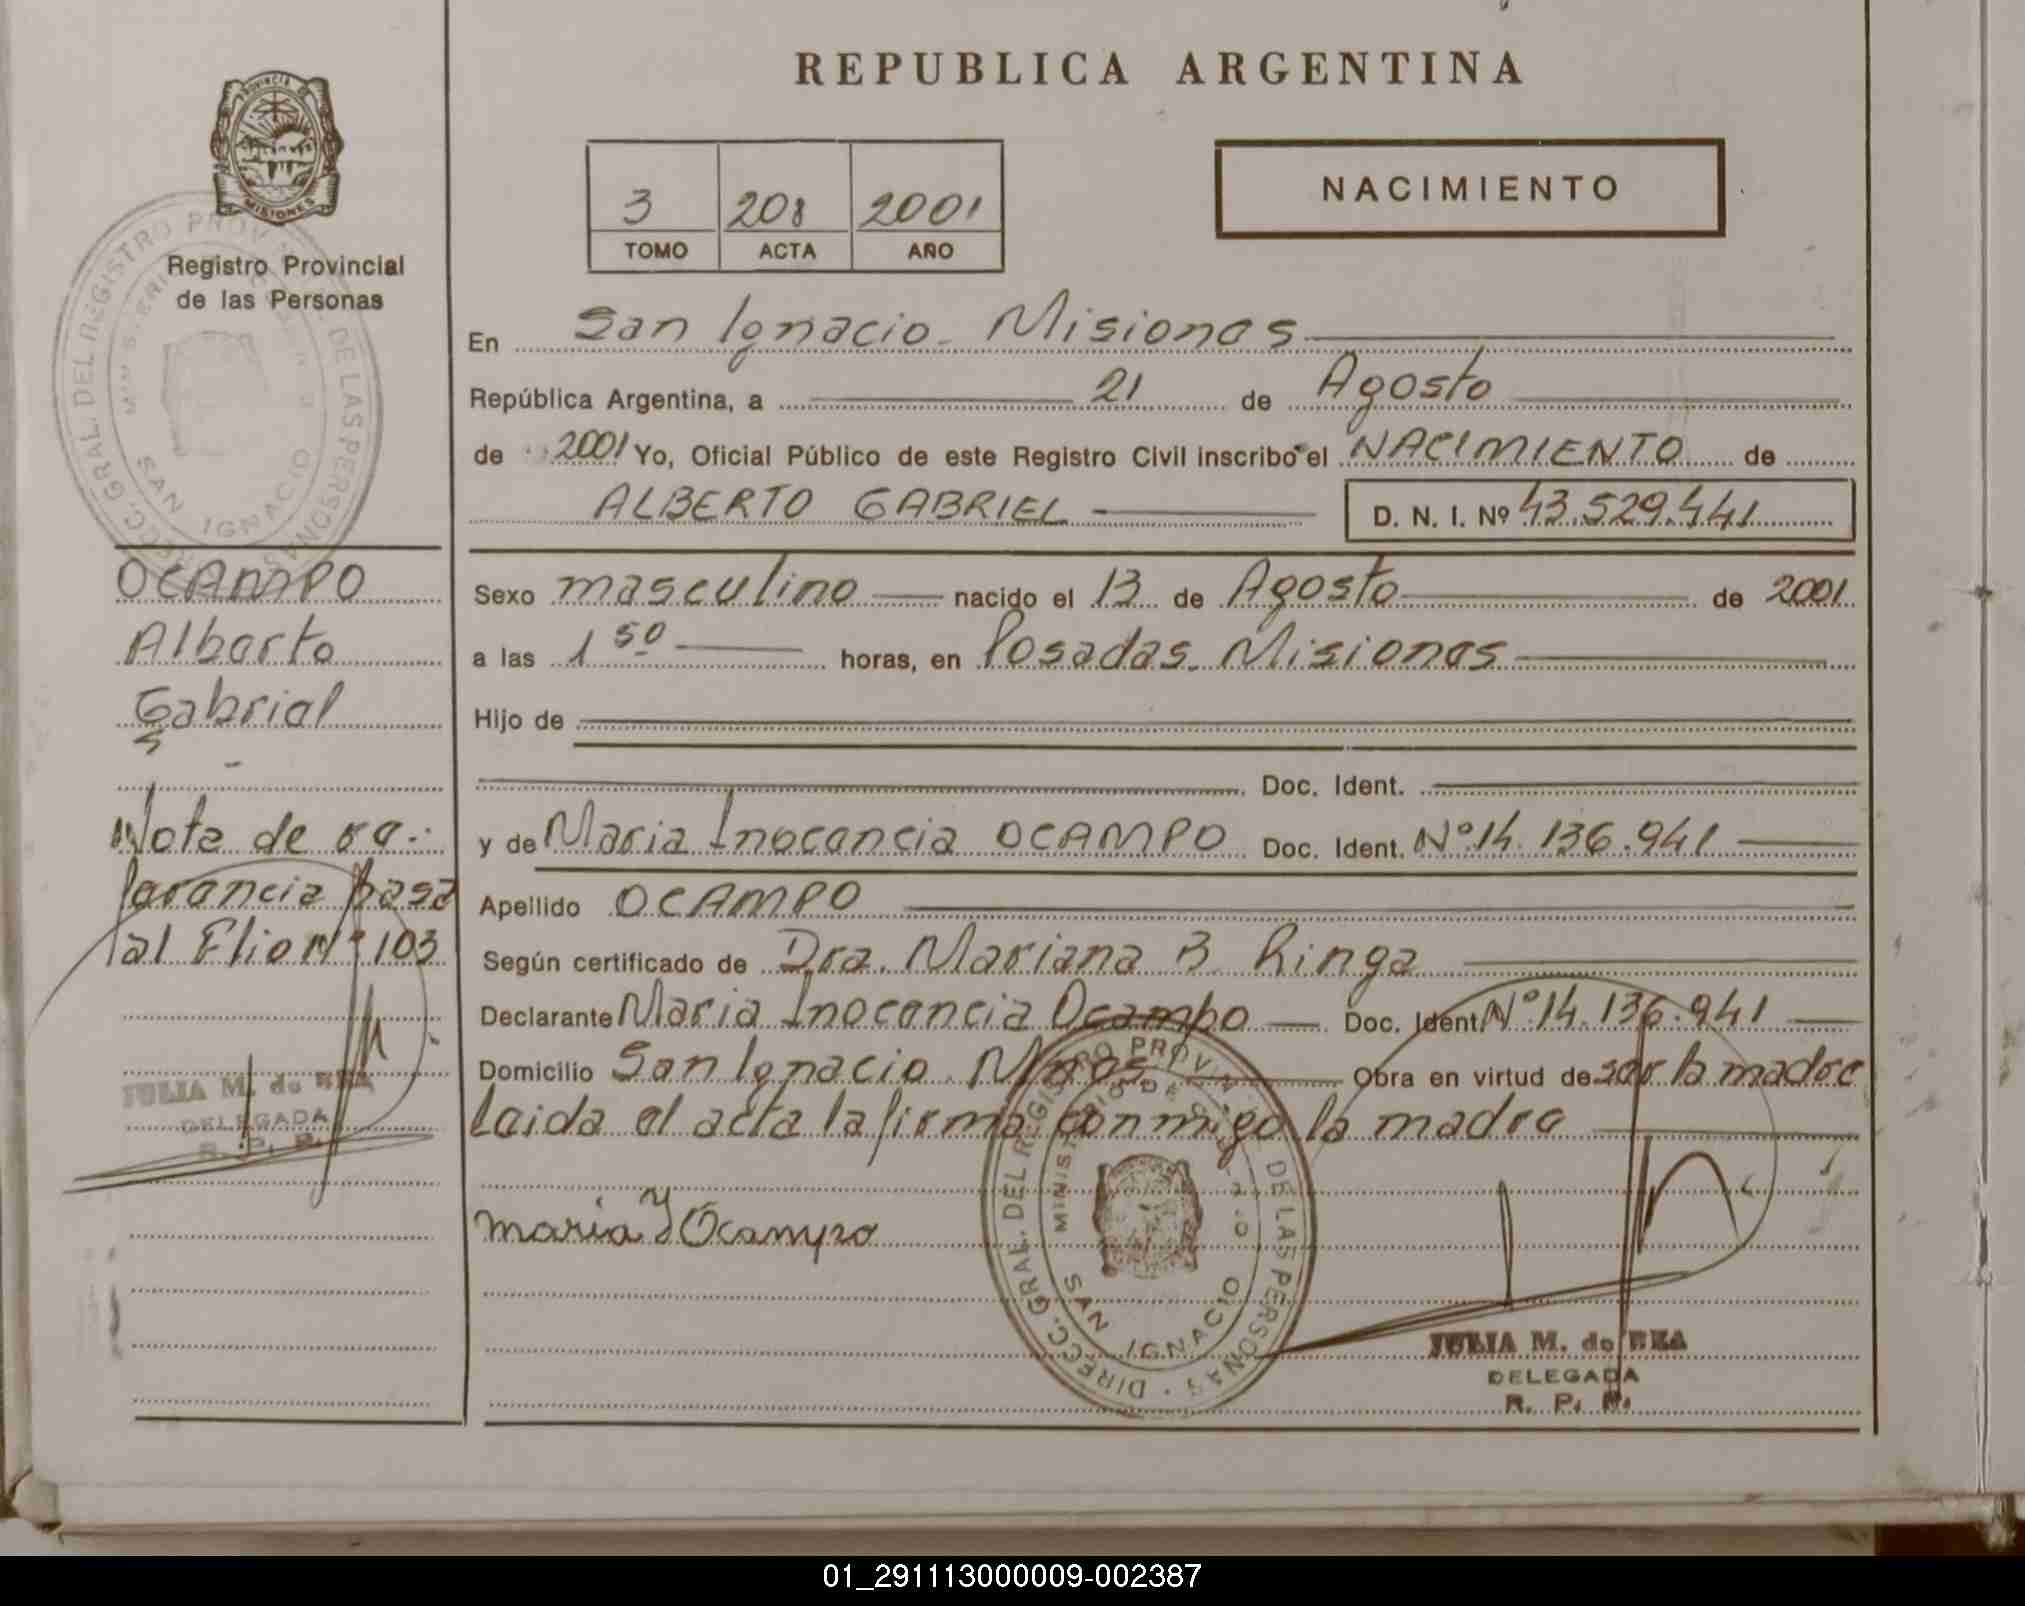 REPUBLICA ARGENTINA
PROVINCIA DE
MISIONES
Registro Provincial
de las Personas
3 208 2001
TOMO ACTA AÑO
NACIMIENTO
En San Ignacio - Misiones
República Argentina, a 21 de Agosto
de 2001 Yo, Oficial Público de este Registro Civil inscribo el NACIMIENTO de
ALBERTO GABRIEL D. N. I. Nº 43.529.441
Sexo masculino nacido el 13 de Agosto de 2001
a las 1 50 horas, en Posadas. Misiones
Hijo de
Doc. Ident.
y de Maria Inocencia OCAMPO Doc. Ident. Nº 14.136.941
Apellido OCAMPO
Según certificado de Dra. Mariana B. Ringa
Declarante Maria Inocencia Ocampo Doc. Ident. Nº 14.136.941
Domicilio San Ignacio Mnes Obra en virtud de ser la madre
Leida el acta la firma conmigo la madre
maria Y Ocampo
DIRECC. GRAL. DEL REGISTRO PROVIN. DE LAS PERSONAS
SAN IGNACIO
JULIA M. de REA
DELEGADA
R. P. P.
OCAMPO
Alberto
Gabriel
Nota de re-
ferencia pasa
al Flio Nº 103
JULIA M. de REA
DELEGADA
R. P. P.
DIRECC. GRAL. DEL REGISTRO PROV. DE LAS PERSONAS
SAN IGNACIO
01_291113000009-002387